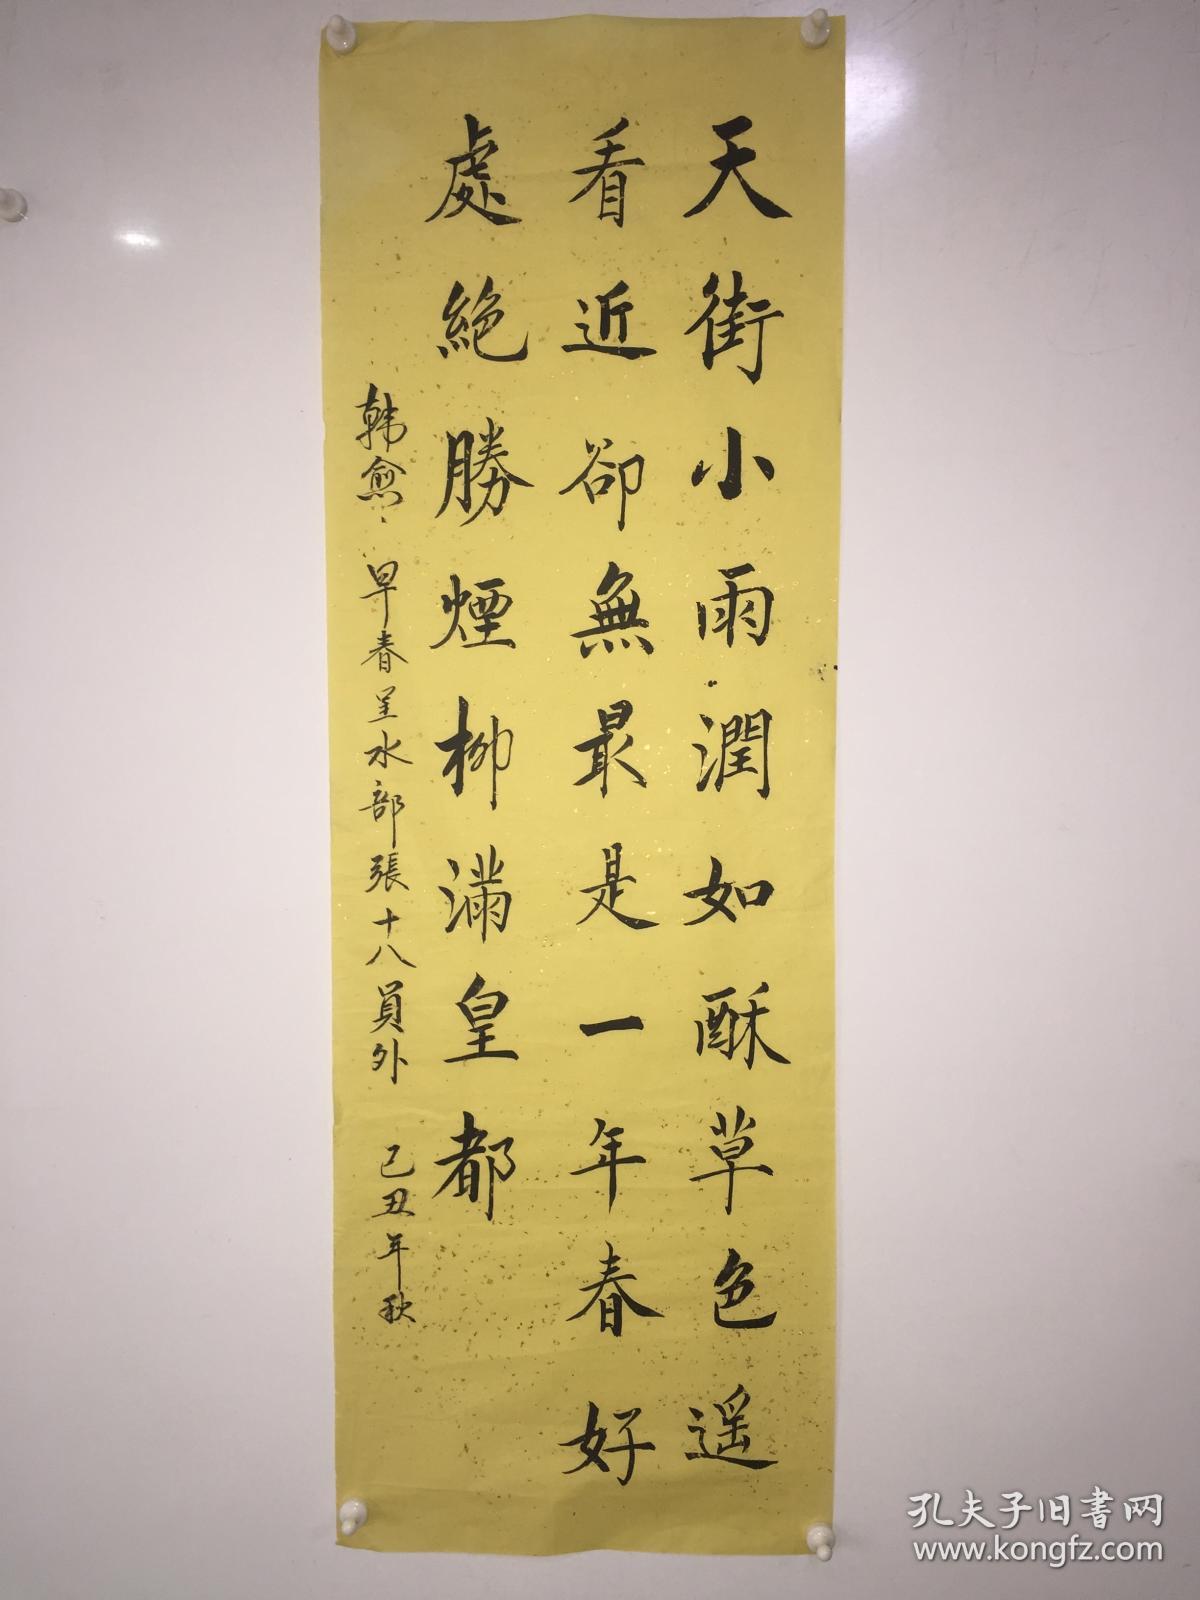 天街小雨潤如酥草色遥
看近卻無最是一年春好
處絶勝煙柳滿皇都
韩愈、早春呈水部張十八員外 己丑年秋
孔夫子旧書网
www.kongfz.com